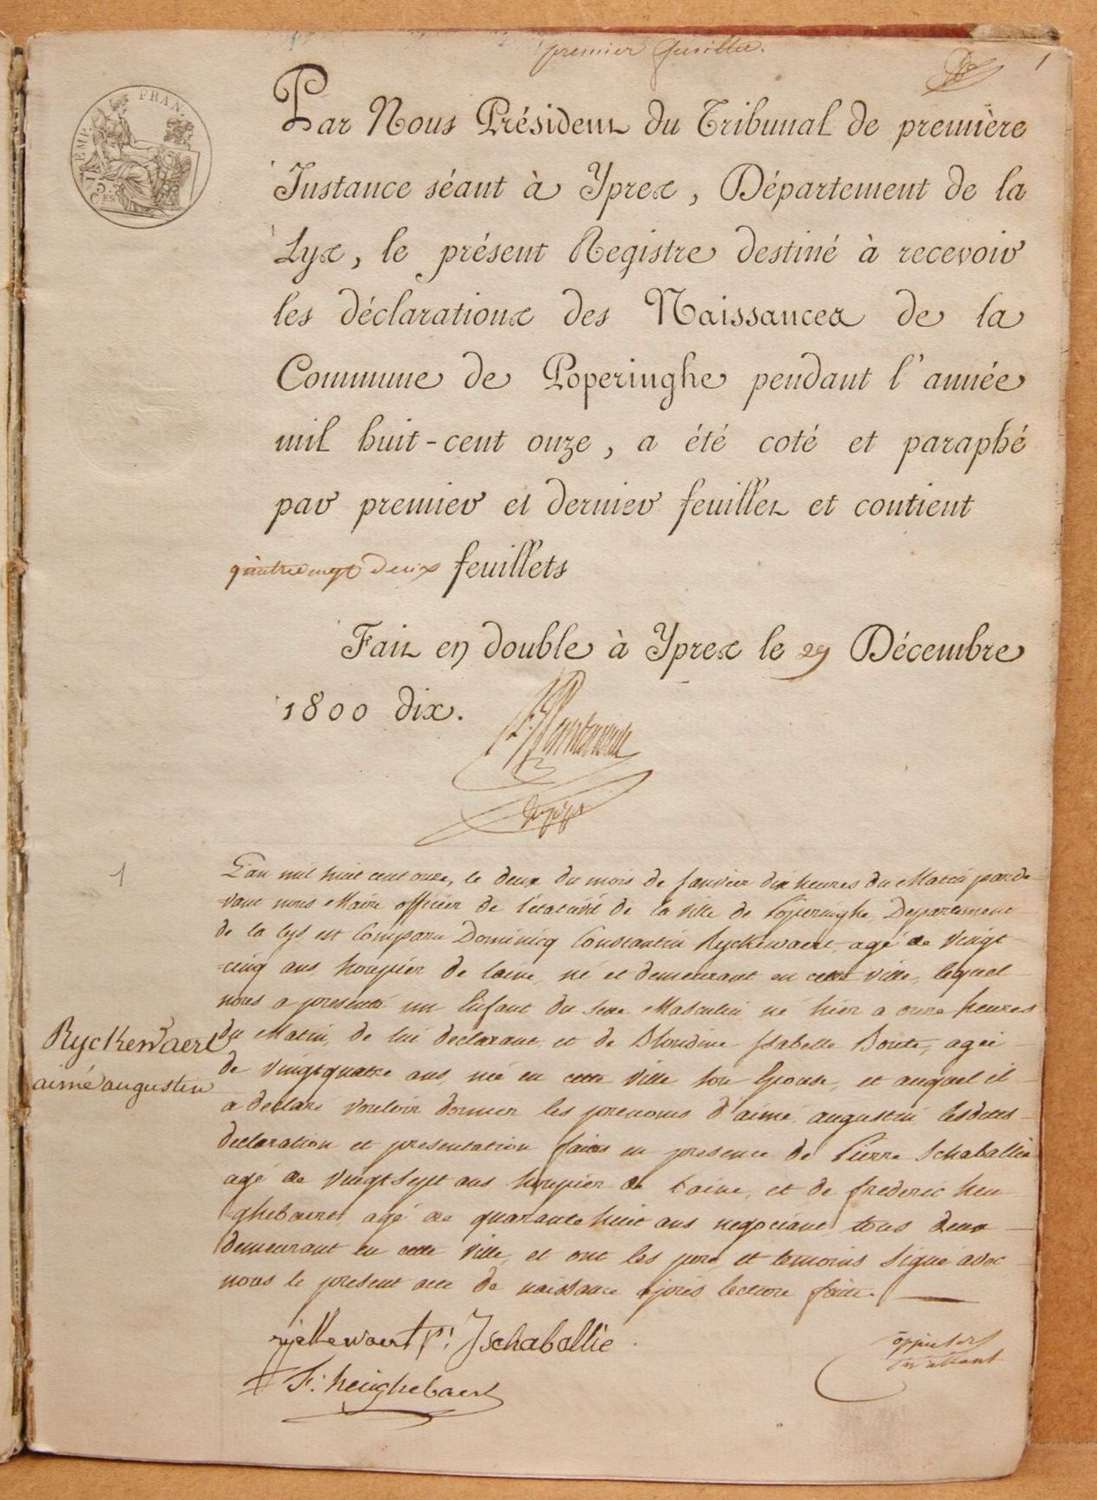 premier feuillet.
1
TIMP. FRAN.
Par Nous Président du Tribunal de première
Instance séant à Ypres, Département de la
Lys, le présent Registre destiné à recevoir
les déclarations des Naissances de la
Commune de Poperinghe pendant l'année
mil huit-cent onze, a été coté et paraphé
par premier et dernier feuillet et contient
quatre vingt deux feuillets
Fait en double à Ypres le 29 Décembre
1800 dix.
1
L'an mil huit cent onze, le deux du mois de Janvier dix heures du Matin parde-
vant nous Maire officier de l'etat civil de la ville de Poperinghe, Departement
de la Lys est Comparu Dominicq Constantin Ryckewaert agé de vingt
cinq ans houpier de laine, né et demeurant en cette ville, lequel
nous a presenté un Enfant du sexe Masculin né hier a onze heures
du Matin, de lui declarant et de Blondine Isabelle Bonte, agée
Ryckewaert
aimé augustin
de vingt quatre ans née en cette ville son Epouse, et auquel il
a declaré vouloir donner les prenoms d'aimé augustin lesdites
declaration et presentation faites en presence de Pierre Schaballie
agé de vingt sept ans houpier de Laine, et de frederic heu
ghebaert agé de quarante huit ans negociant tous deux
demeurant en cette ville, et ont les pere et temoins signé avec
nous le present acte de naissance après lecture faite.
ryckewaert P: J schaballie
F: heughebaert